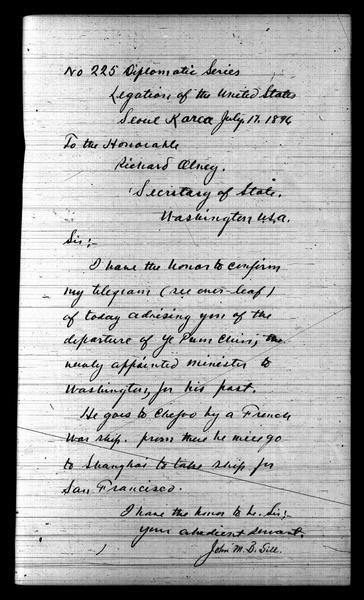 No 225 Diplomatic Series
Legation of the United States
Seoul Korea July 17. 1896
To the Honorable
Richard Olney.
Secretary of State.
Washington U.S.A.
Sir:-
I have the honor to confirm
my telegram (see over-leaf)
of today advising you of the
departure of Ye Pum Chin, the
newly appointed minister to
Washington, for his post.
He goes to Chefoo by a French
War ship. from there he will go
to Shanghai to take ship for
San Francisco.
I have the honor to be. Sir:
Your obedient servant.
John M. B. Sill.